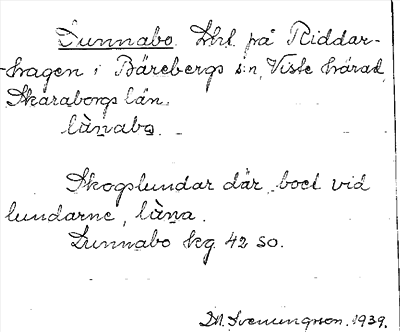 Lunnabo. Lht. på Riddar-
-hagen i Bärebergs s:n, Viste härad,
Skaraborgs län.
làṉabo.
Skogslundar där, boet vid
lundarne, làṉa.
Lunnabo kg 42 SO.
D.A. Svenungsson. 1939.